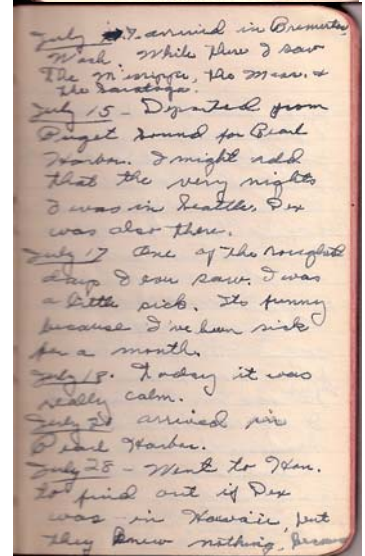 July 7 arrived in Bremerton,
Wash. While there I saw
the Missippi, the Mass. &
the Saratoga.
July 15 - Departed from
Puget Sound for Pearl
Harbor. I might add
that the very nights
I was in Seattle, Dex
was also there.
July 17 One of the roughest
days I ever saw. I was
a little sick. Its funny
because I've been sick
for a month.
July 18. Today it was
really calm.
July arrived in
Pearl Harbor.
July 28 - Went to Hon.
to find out if Dex
was in Hawaii, but
they knew nothing,